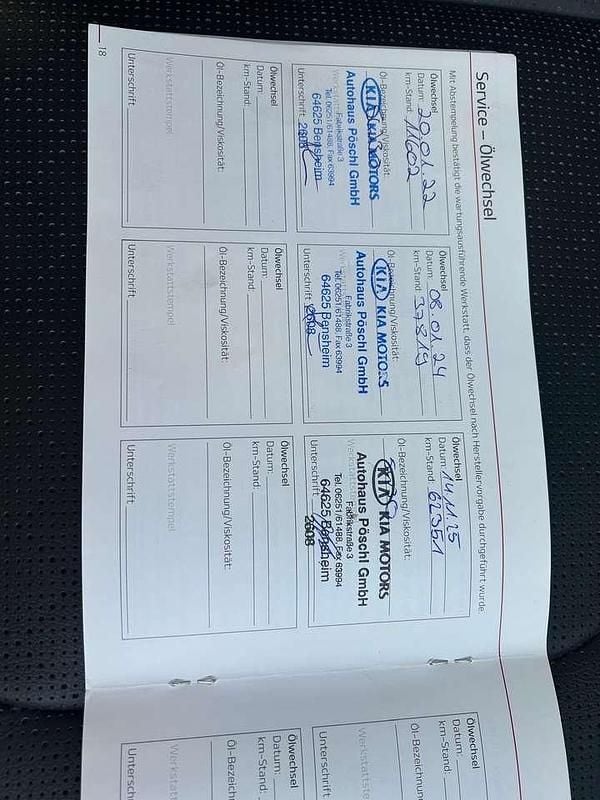 Service – Ölwechsel
Mit Abstempelung bestätigt die wartungsausführende Werkstatt, dass der Ölwechsel nach Herstellervorgabe durchgeführt wurde.
Ölwechsel
Datum: 20.01.22
km-Stand: 11602
Öl-Bezeichnung/Viskosität:
KIA KIA MOTORS
Autohaus Pöschl GmbH
Fabrikstraße 3
Tel. 06251/61488, Fax 63994
64625 Bensheim
Unterschrift: 2608
Ölwechsel
Datum: 08.01.24
km-Stand: 37819
Öl-Bezeichnung/Viskosität:
KIA KIA MOTORS
Autohaus Pöschl GmbH
Fabrikstraße 3
Tel. 06251/61488, Fax 63994
64625 Bensheim
Unterschrift: 2608
Ölwechsel
Datum: 14.11.25
km-Stand: 62351
Öl-Bezeichnung/Viskosität:
KIA KIA MOTORS
Autohaus Pöschl GmbH
Fabrikstraße 3
Tel. 06251/61488, Fax 63994
64625 Bensheim
Unterschrift: 2608
Ölwechsel
Datum:
km-Stand:
Öl-Bezeichnung/Viskosität:
Werkstattstempel
Unterschrift:
Ölwechsel
Datum:
km-Stand:
Öl-Bezeichnung/Viskosität:
Werkstattstempel
Unterschrift:
Ölwechsel
Datum:
km-Stand:
Öl-Bezeichnung/Viskosität:
Werkstattstempel
Unterschrift:
18
Ölwechsel
Datum:
km-Stand:
Öl-Bezeichnun
Werkstattste
Unterschrift:
Ölwechsel
Datum:
km-Stand:
Öl-Bezeichn
Werkstatts
Unterschrift: